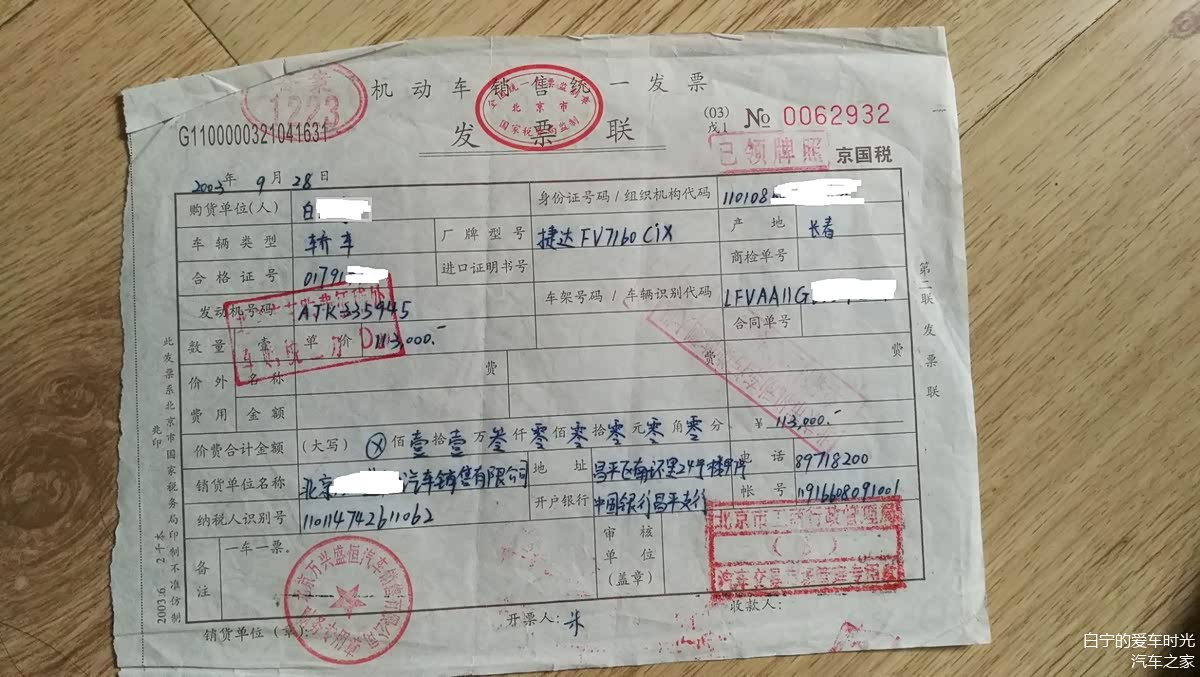 机动车销售统一发票
1223
全国统一发票监制章
北京市
国家税务局监制
G1100000321041631
发票联
(03)
戊1
№ 0062932
已领牌照
京国税
2003年 9月 28日
购货单位(人) 白 身份证号码/组织机构代码 110108
车辆类型 轿车 厂牌型号 捷达 FV7160 CiX 产地 长春
合格证号 01791 进口证明书号 商检单号
发动机号码 ATK335945 车架号码/车辆识别代码 LFVAA11G
数量 壹 单价 113,000.- 合同单号
价外费用 名称 费 费 费
金额
价费合计金额 (大写) ⓧ佰壹拾壹万叁仟零佰零拾零元零角零分 ¥ 113,000.-
销货单位名称 北京 汽车销售有限公司 地址 电话 89718200
纳税人识别号 110114742611062 开户银行 中国银行昌平支行 帐号 1916608091001
备注 一车一票。 审核单位(盖章)
北京市工商行政管理局
(3)
北京万兴盛恒汽车销售有限公司
销货单位(章): 开票人: 朱 收款人:
第二联 发票联
此发票系北京市国家税务局印制不准仿制
2003.6.
白宁的爱车时光
汽车之家